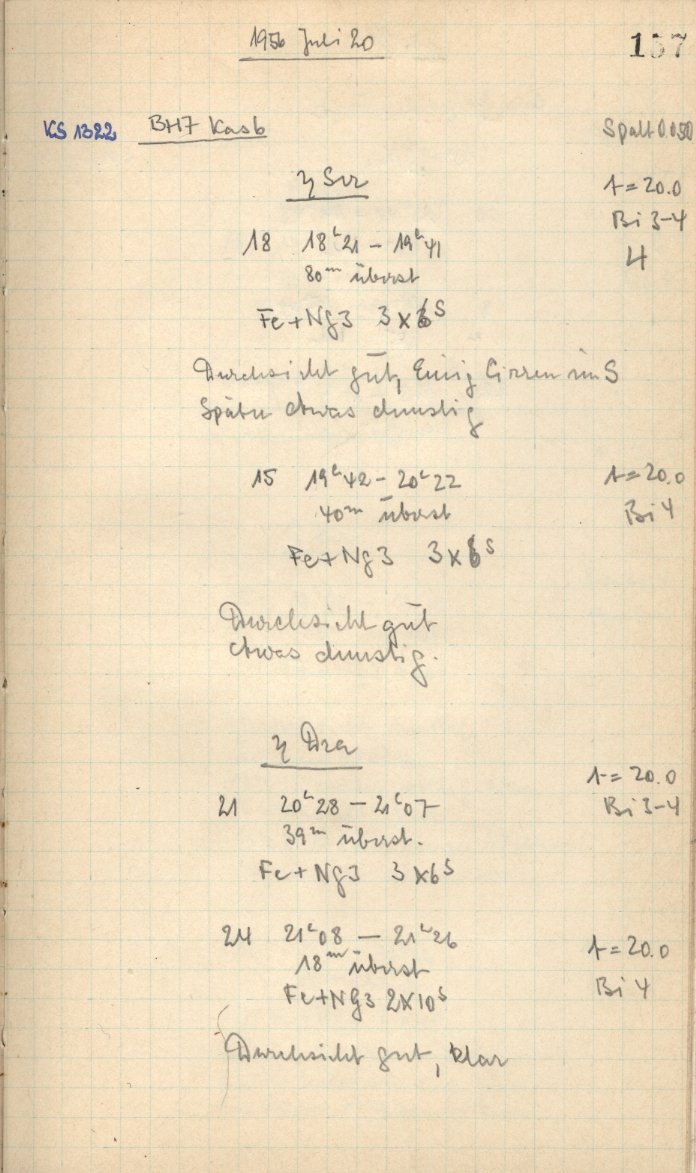 1956 Juli 20
157
KS 1322 BH7 Kas6 Spalt 0.050
η Ser t = 20.0
Bi 3-4
18 18ʰ21 – 19ʰ41 4
80ᵐ überst
Fe+Ng3 3×6ˢ
Durchsicht gut, Einig Cirren im S
Später etwas dunstig
15 19ʰ42 – 20ʰ22 t = 20.0
40ᵐ überst Bi 4
Fe+Ng3 3×6ˢ
Durchsicht gut
etwas dunstig.
η Dra
t = 20.0
21 20ʰ28 – 21ʰ07 Bi 3-4
39ᵐ überst.
Fe+Ng3 3×6ˢ
24 21ʰ08 – 21ʰ26 t = 20.0
18ᵐ überst
Fe+Ng3 2×10ˢ Bi 4
Durchsicht gut, klar